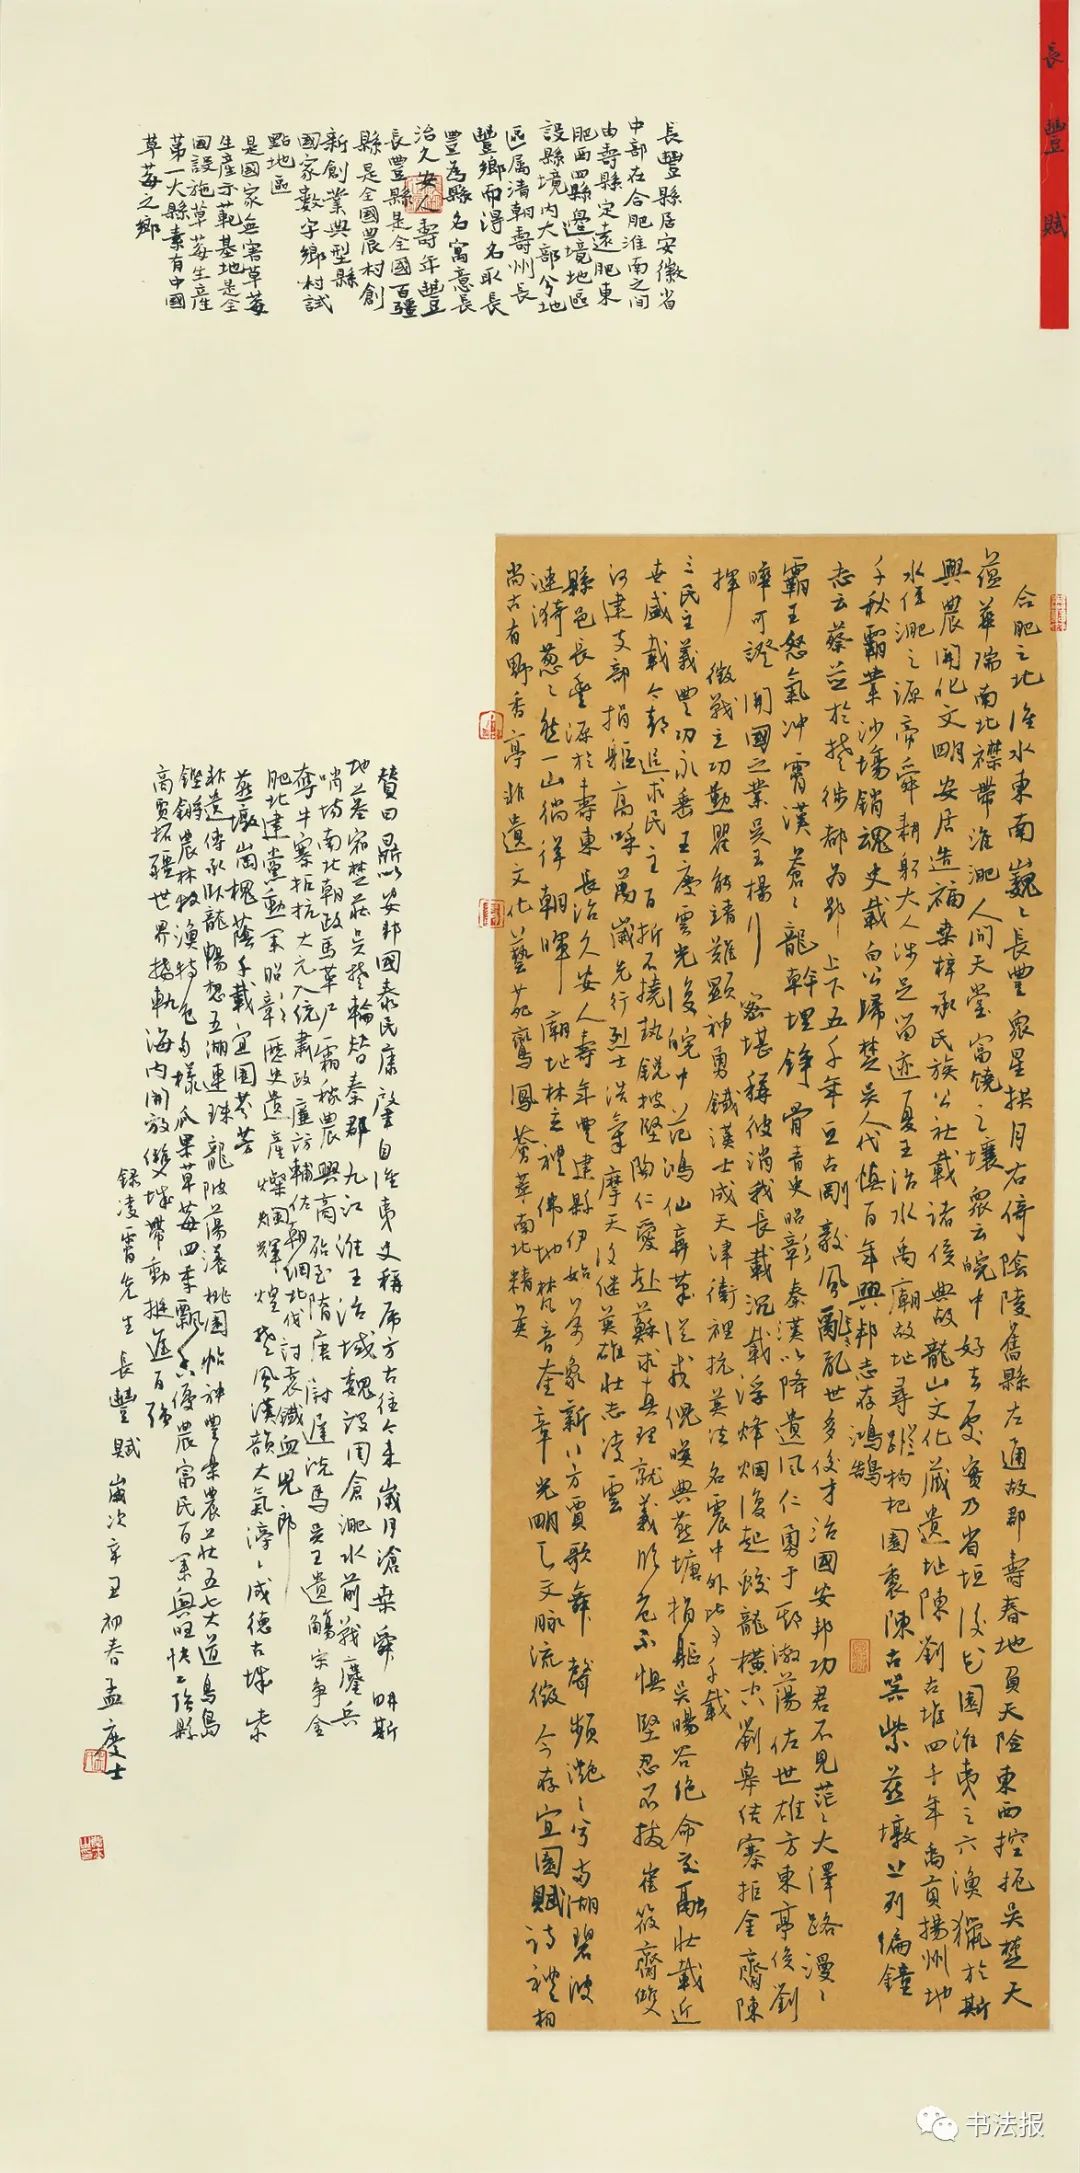 長豐賦
長豐縣居安徽省
中部在合肥淮南之間
由壽縣定遠肥東
肥西四縣邊境地區
設縣境內大部分地
區屬清朝壽州長
豐鄉而得名取長
豐為縣名寓意長
治久安人壽年豐
長豐縣是全國百強
縣是全國農村創
新創業典型縣
國家數字鄉村試
點地區
是國家無害草莓
生產示範基地是全
國設施草莓生產
第一大縣素有中國
草莓之鄉
合肥之北淮水東南巍〻長豐眾星拱月右倚陰陵舊縣左通故郡壽春地負天險東西控扼吳楚天
蘊華瑞南北襟帶淮淝人間天堂富饒之壤眾云皖中好去處實乃省垣後花園淮夷之六漁獵於斯
興農開化文明安居造福桑梓承民族公社載諸侯典故龍山文化藏遺址陳劉古堆四千年禹貢揚州地
水經淝之源帝舜耕躬大人涉足留迹夏王治水禹廟故地尋蹤枸杞園裏陳古器紫燕墩上列編鐘
千秋霸業沙場銷魂史載白公歸楚吳人代慎百年興邦志存鴻鵠
志云蔡並於楚徙都為郢上下五千年亙古剛毅風亂世多俊才治國安邦功君不見茫〻大澤路漫〻
霸王怒氣沖霄漢蒼〻龍幹埋錚骨青史昭彰秦漢以降遺風仁勇于邳激蕩佐世雄方東亭侯劉
曄可證開國之業吳王楊行密堪稱彼消我長載沉載浮烽烟復起蛟龍橫空劉皋結寨拒金齋陳
揮微戰立功勤瞿能靖難顯神勇鐵漢士成天津衛裡抗英法名震中外此事千載
三民主義豐功永垂王慶雲光復皖中范鴻仙棄筆從戎倪映典燕塘捐軀吳暘谷絕命交融壯載近
世盛載今朝追求民主百折不撓執銳披堅陶仁愛赴蘇求真理就義臨危不懼堅忍不拔崔筱齋雙
河建支部捐軀高呼萬歲先行烈士浩氣摩天後繼英雄壯志凌雲
縣邑長豐源於壽東長治久安人壽年豐建縣伊始萬象新八方賈歌舞聲頻灔〻兮南湖碧波
漣漪蔥〻然一山徜徉朝暉廟址林立禮佛地梵音奎章光明之文脉流徽今存宜園賦詩禮相
尚古有野香亭非遺文化藝苑鸞鳳薈萃南北精英
贊曰鼎以安邦國泰民康肇自淮夷史稱虎方古往今來歲月滄桑舜耕斯
地墓宕楚莊吳楚輪替秦郡九江淮王治域魏設閏倉淝水前戰鏖兵
哨坊南北朝政馬革尸霜稼農興高殆至隋唐尉遲洗馬吳王遺觴宋爭金
奪牛寨拒抗大元入統肅政廉訪輔佐朝綱北伐討袁鐵血兒郎
肥北建黨勳業昭彰歷史遺產燦爛輝煌楚風漢韻大氣濘〻成德古城紫
燕墩崗槐蔭千載宜園芬芳
非遺傳承臥龍暢想五湖連珠龍陂蕩漾桃園帖神豐樂農莊五七大道鳥島
鏗鏘農林牧漁特色多樣瓜果草莓四季飄香優農富民百業興旺快上強縣
高質拓疆世界揚軌海內開放雙城帶動挺進百強
錄凌霄先生長豐賦歲次辛丑初春孟慶士
书法报